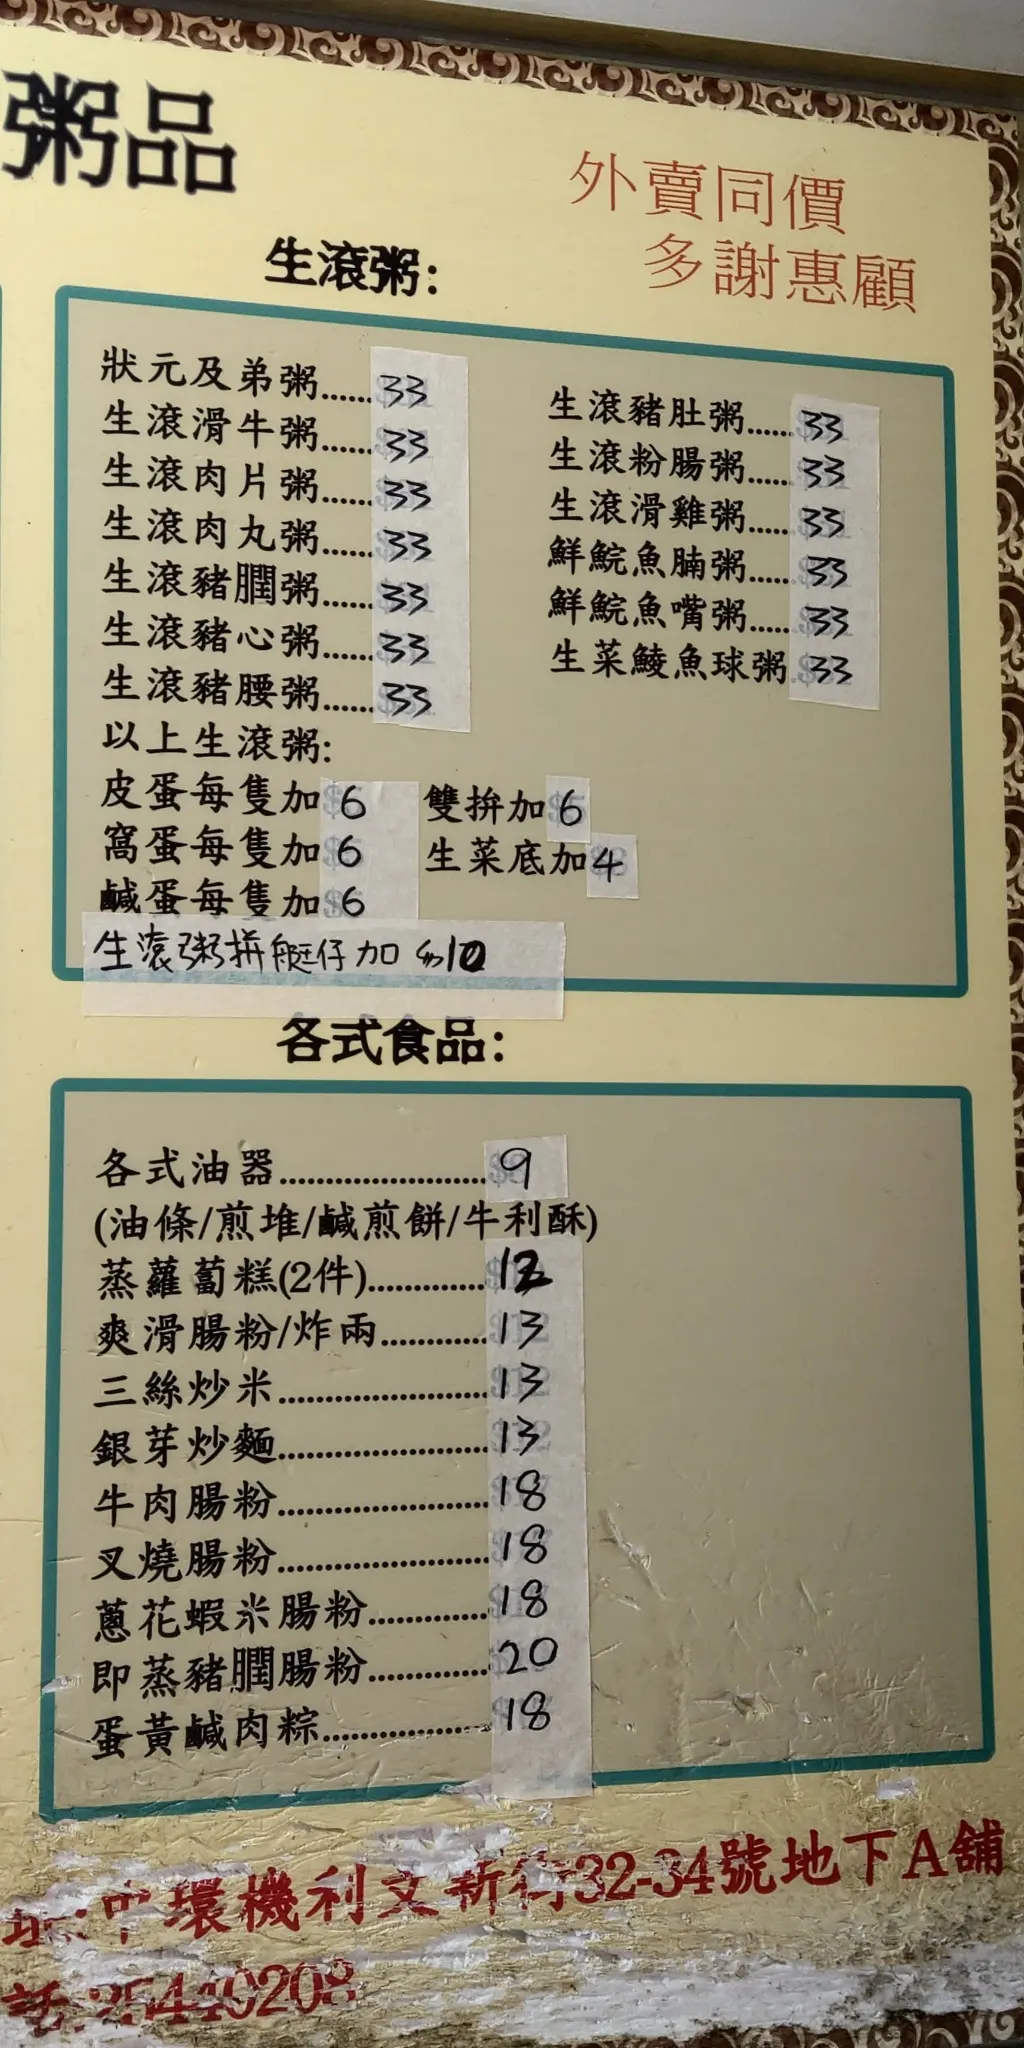 粥品
外賣同價
多謝惠顧
生滾粥:
狀元及弟粥......33
生滾滑牛粥......33
生滾肉片粥......33
生滾肉丸粥......33
生滾豬膶粥......33
生滾豬心粥......33
生滾豬腰粥......33
生滾豬肚粥......33
生滾粉腸粥......33
生滾滑雞粥......33
鮮鯇魚腩粥......33
鮮鯇魚嘴粥......33
生菜鯪魚球粥.33
以上生滾粥:
皮蛋每隻加6
窩蛋每隻加6
鹹蛋每隻加6
雙拚加6
生菜底加4
生滾粥拼艇仔加$10
各式食品:
各式油器......................9
(油條/煎堆/鹹煎餅/牛利酥)
蒸蘿蔔糕(2件)............12
爽滑腸粉/炸兩...........13
三絲炒米......................13
銀芽炒麵......................13
牛肉腸粉......................18
叉燒腸粉......................18
蔥花蝦米腸粉............18
即蒸豬膶腸粉............20
蛋黃鹹肉粽.................18
址:中環機利文新街32-34號地下A舖
話:25440208